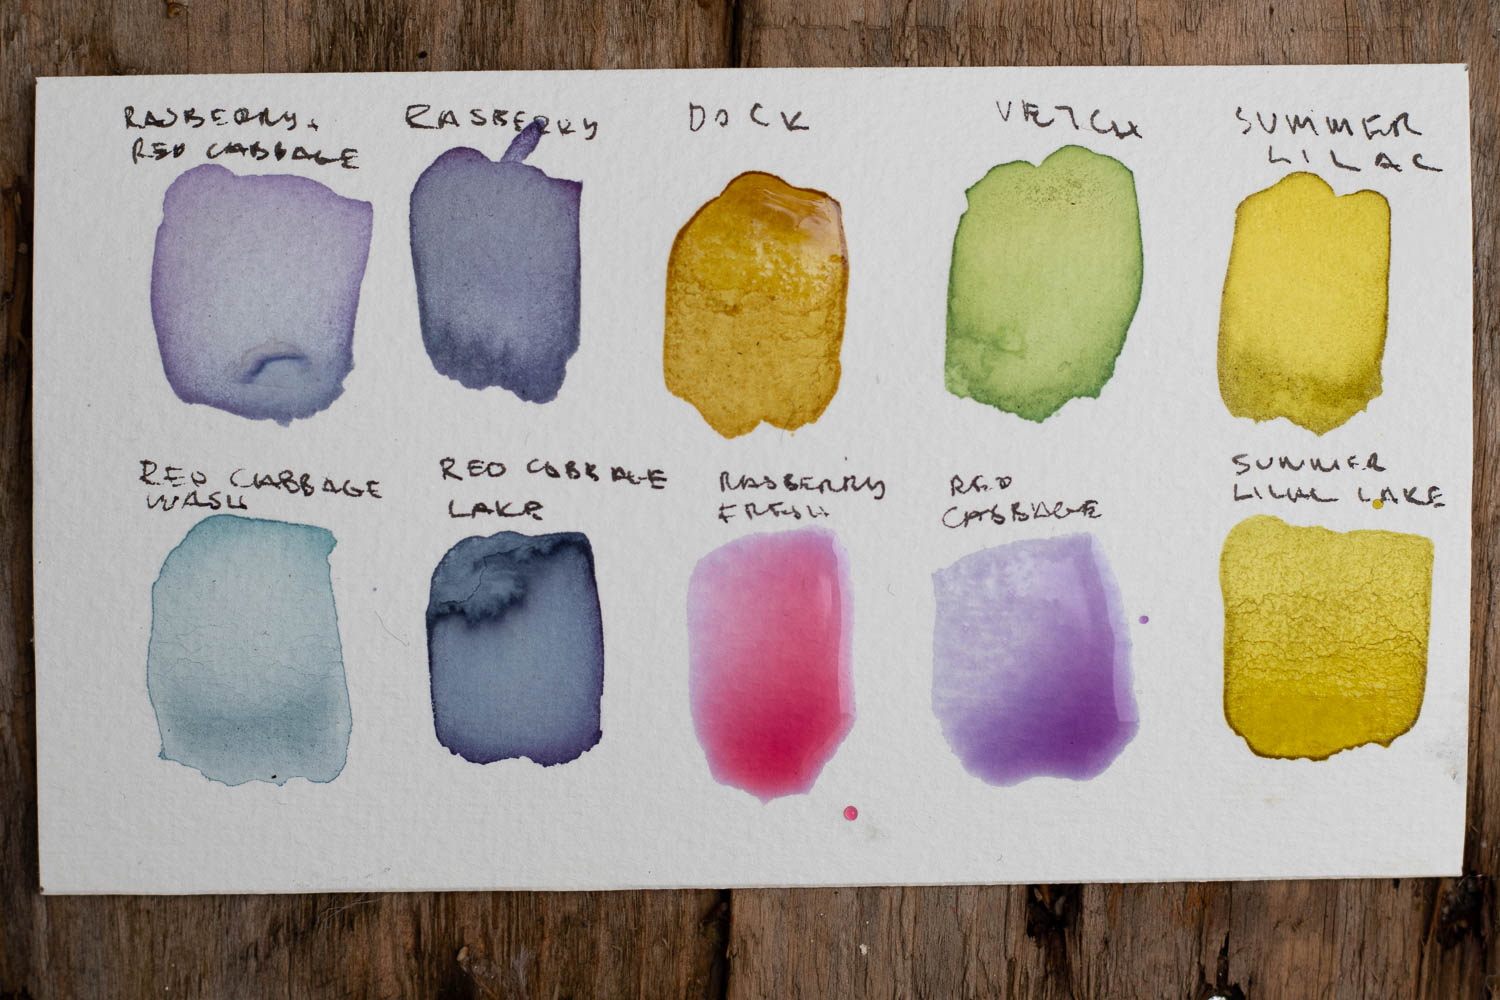 RASBERRY +
RED CABBAGE
RASBERRY
DOCK
VETCH
SUMMER
LILAC
RED CABBAGE
WASH
RED CABBAGE
LAKE
RASBERRY
FRESH
RED
CABBAGE
SUMMER
LILAC LAKE